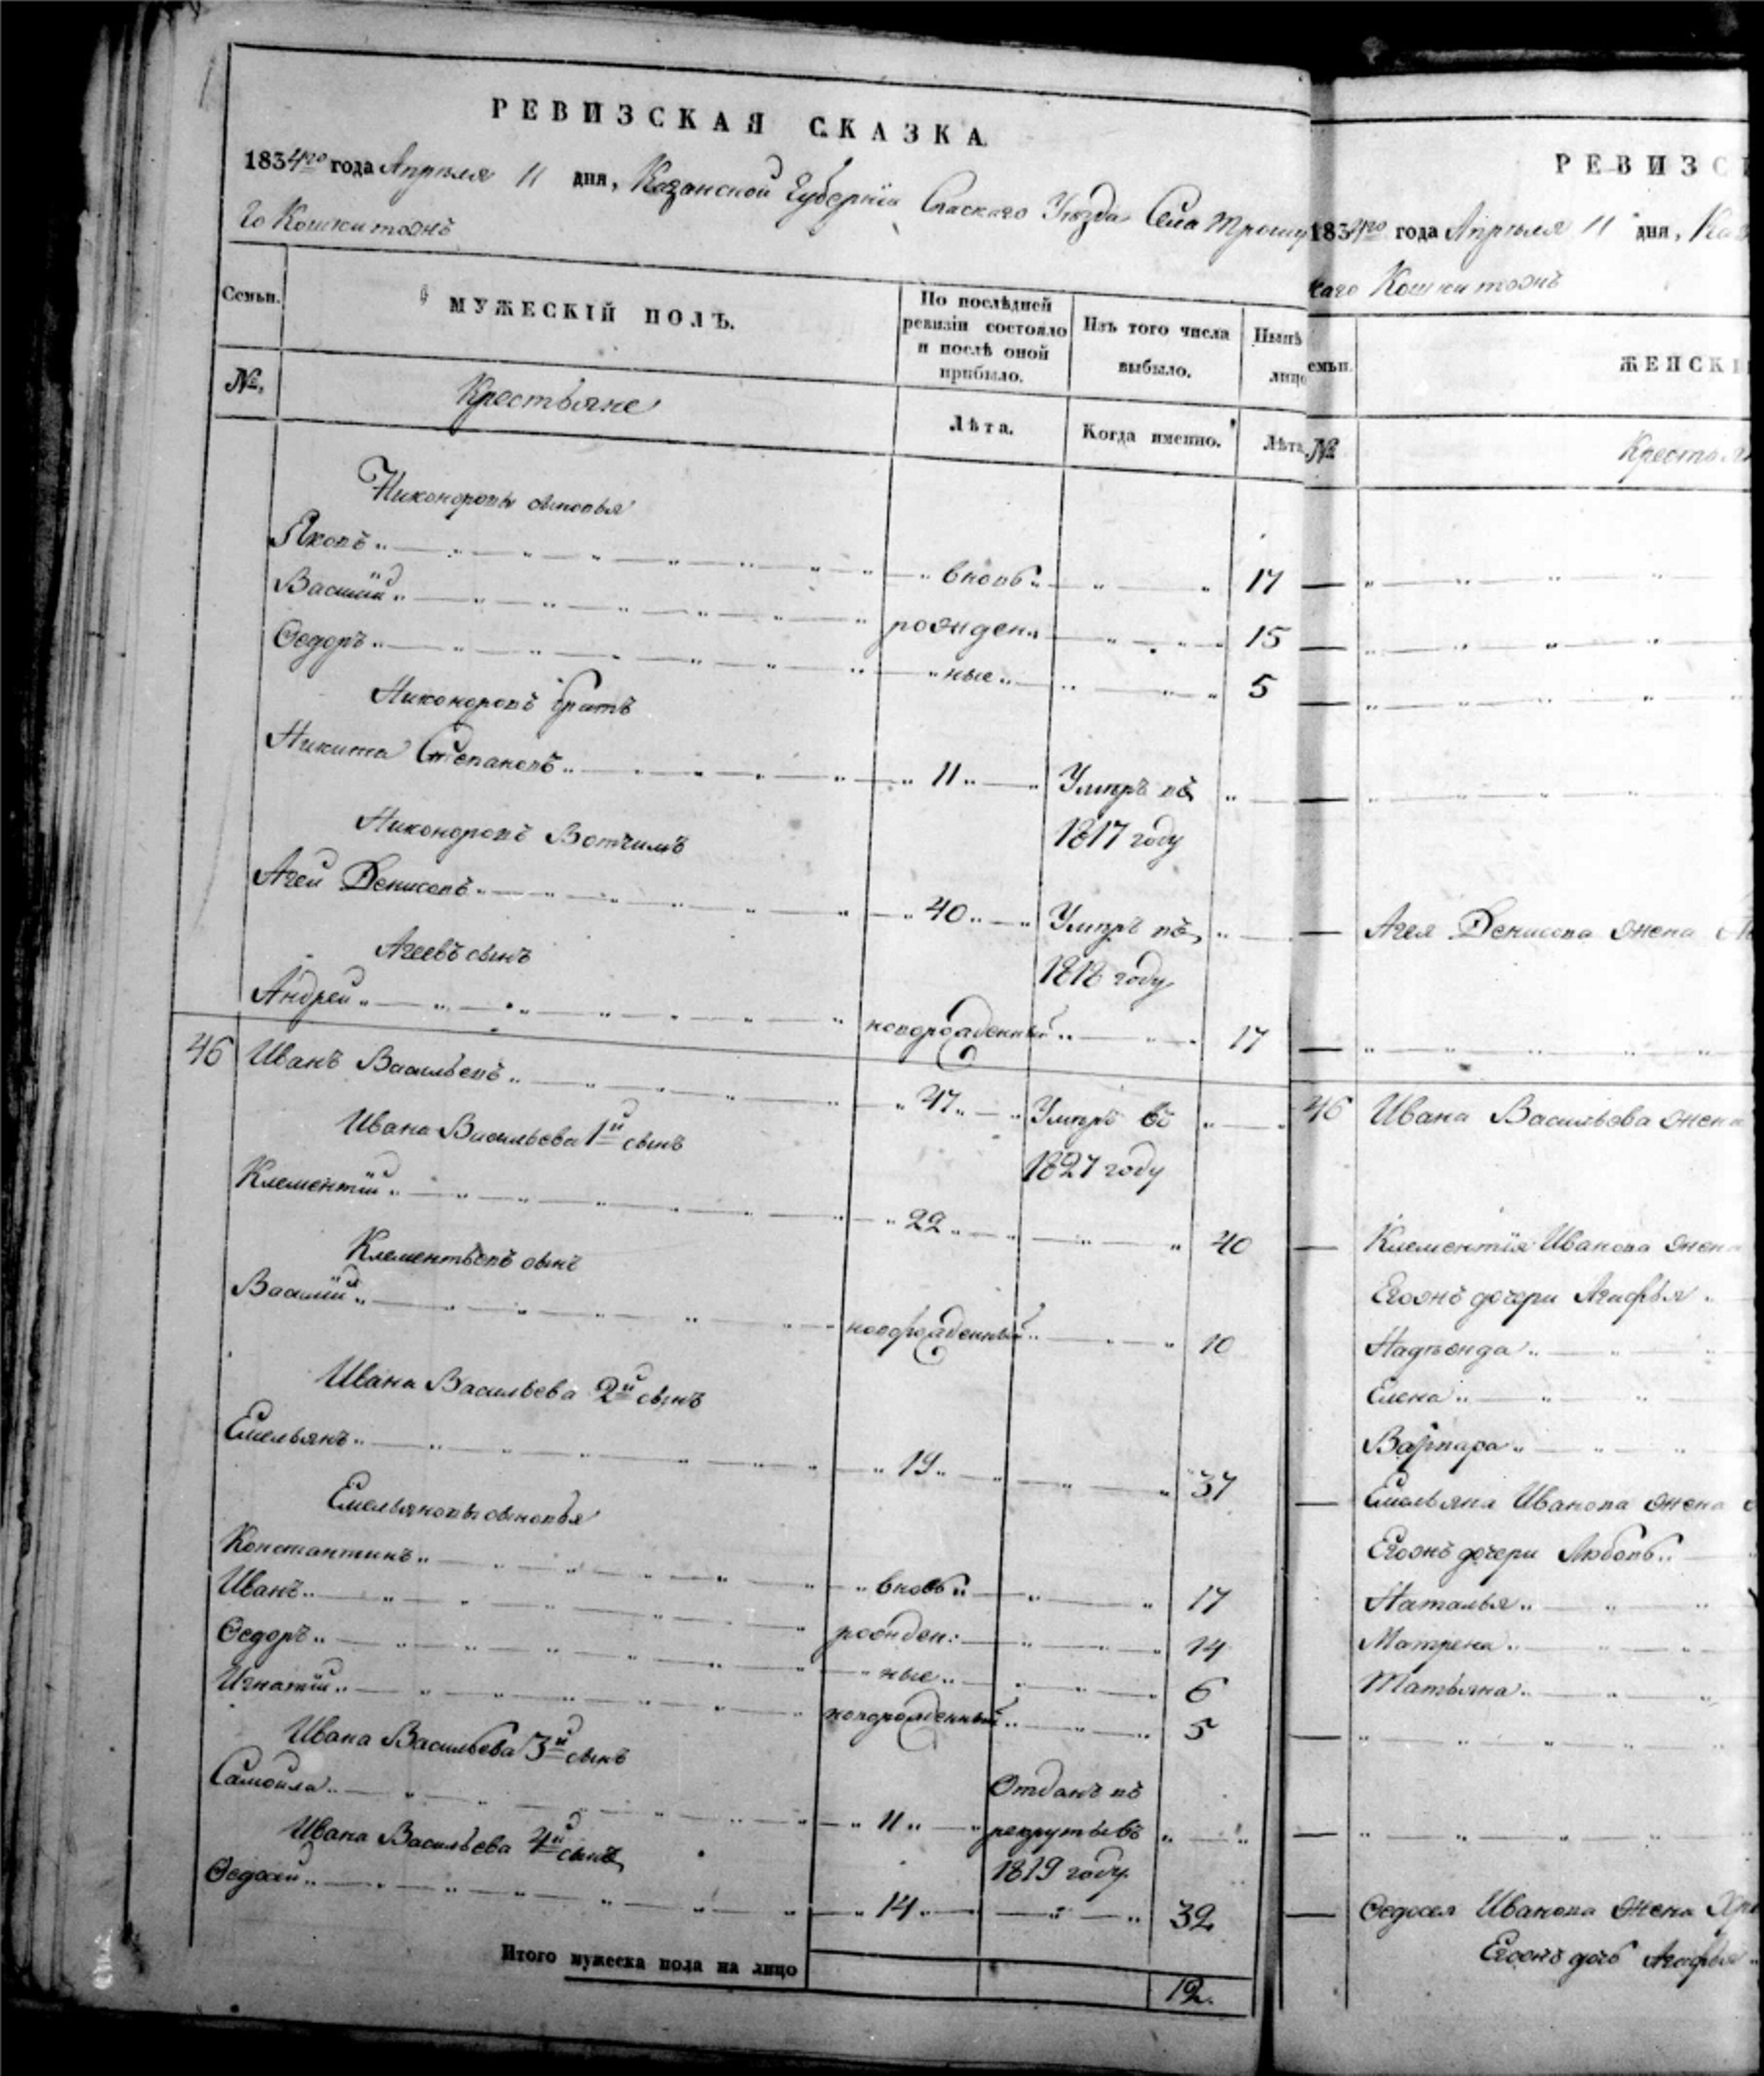 РЕВИЗСКАЯ СКАЗКА.
1834го года Апреля 11 дня, Казанской Губернiи Спаскаго Уезда Села
го Кошки тожъ
Семьи. МУЖЕСКIЙ ПОЛЪ. По послѣдней ревизiи состояло и послѣ оной прибыло. Изъ того числа выбыло. Нынѣ лицо
№. Крестьяне Лѣта. Когда именно. Лѣта
Никоноровы сыновья
Яковъ вновь 17
Василiй рожден 15
Ѳедоръ ные 5
Никоноровъ братъ
Никита Степановъ 11 Умеръ въ
1817 году
Никоноровъ Вотчимъ
Агей Денисовъ 40 Умеръ въ
1818 году
Агеевъ сынъ
Андрей новорожденный 17
46 Иванъ Васильевъ 47 Умеръ въ
1827 году
Ивана Васильева 1й сынъ
Клементiй 22 40
Клементьевъ сынъ
Василiй новорожденный 10
Ивана Васильева 2й сынъ
Емельянъ 19 37
Емельяновы сыновья
Константинъ вновь 17
Иванъ рожден: 14
Ѳедоръ ные 6
Игнатiй новорожденный 5
Ивана Васильева 3й сынъ
Самойла 11 Отданъ въ
рекруты въ
1819 году.
Ивана Васильева 4й сынъ
Ѳедосей 14 32
Итого мужеска пола на лицо 12.
РЕВИЗС
1834го года Апреля 11 дня, Каз
каго Кошки тожъ
емьи. ЖЕНСКI
№ Крестья
Агея Денисова жена
46 Ивана Васильева жена
Клементiя Иванова жена
Егожъ дочери Агафья
Надежда
Елена
Варвара
Емельяна Иванова жена
Егожъ дочери Любовь
Наталья
Матрена
Татьяна
Ѳедосея Иванова жена Хри
Егожъ дочь Агафья